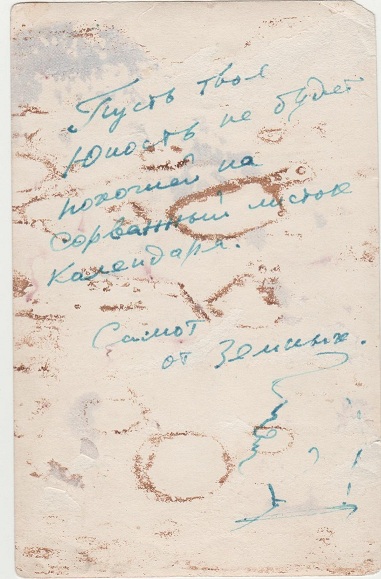 Пусть твоя
Юность не будет
похожей на
сорванный листок
календаря.
Самот
от Земных.